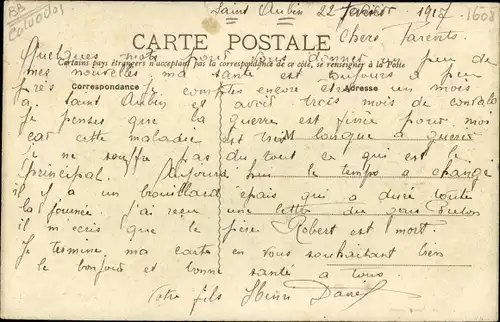 Saint Aubin 22 Février 1917
CARTE POSTALE
Chers Parents
Quelques mots pour vous donner un peu de
Certains pays étrangers n'acceptant pas la correspondance de ce côté, se renseigner à la Poste
mes nouvelles ma santé est toujours à peu
Correspondance
Adresse
près je comptes encore être un mois
a Saint Aubin et avoir trois mois de convale
Je penses que la guerre est finie pour moi
car cette maladie est très longue a guerir
M
je ne souffre pas du tout ce qui est le
principal. Aujourd hui le temps a change
il y a un brouillard épais qui a duré toute
la journée. j'ai reçu une letter du gars
il m ecris que le père Robert est mort.
Je termine ma carte en vous souhaitant bien
le bonjour et bonne santé a tous.
Votre fils Henri